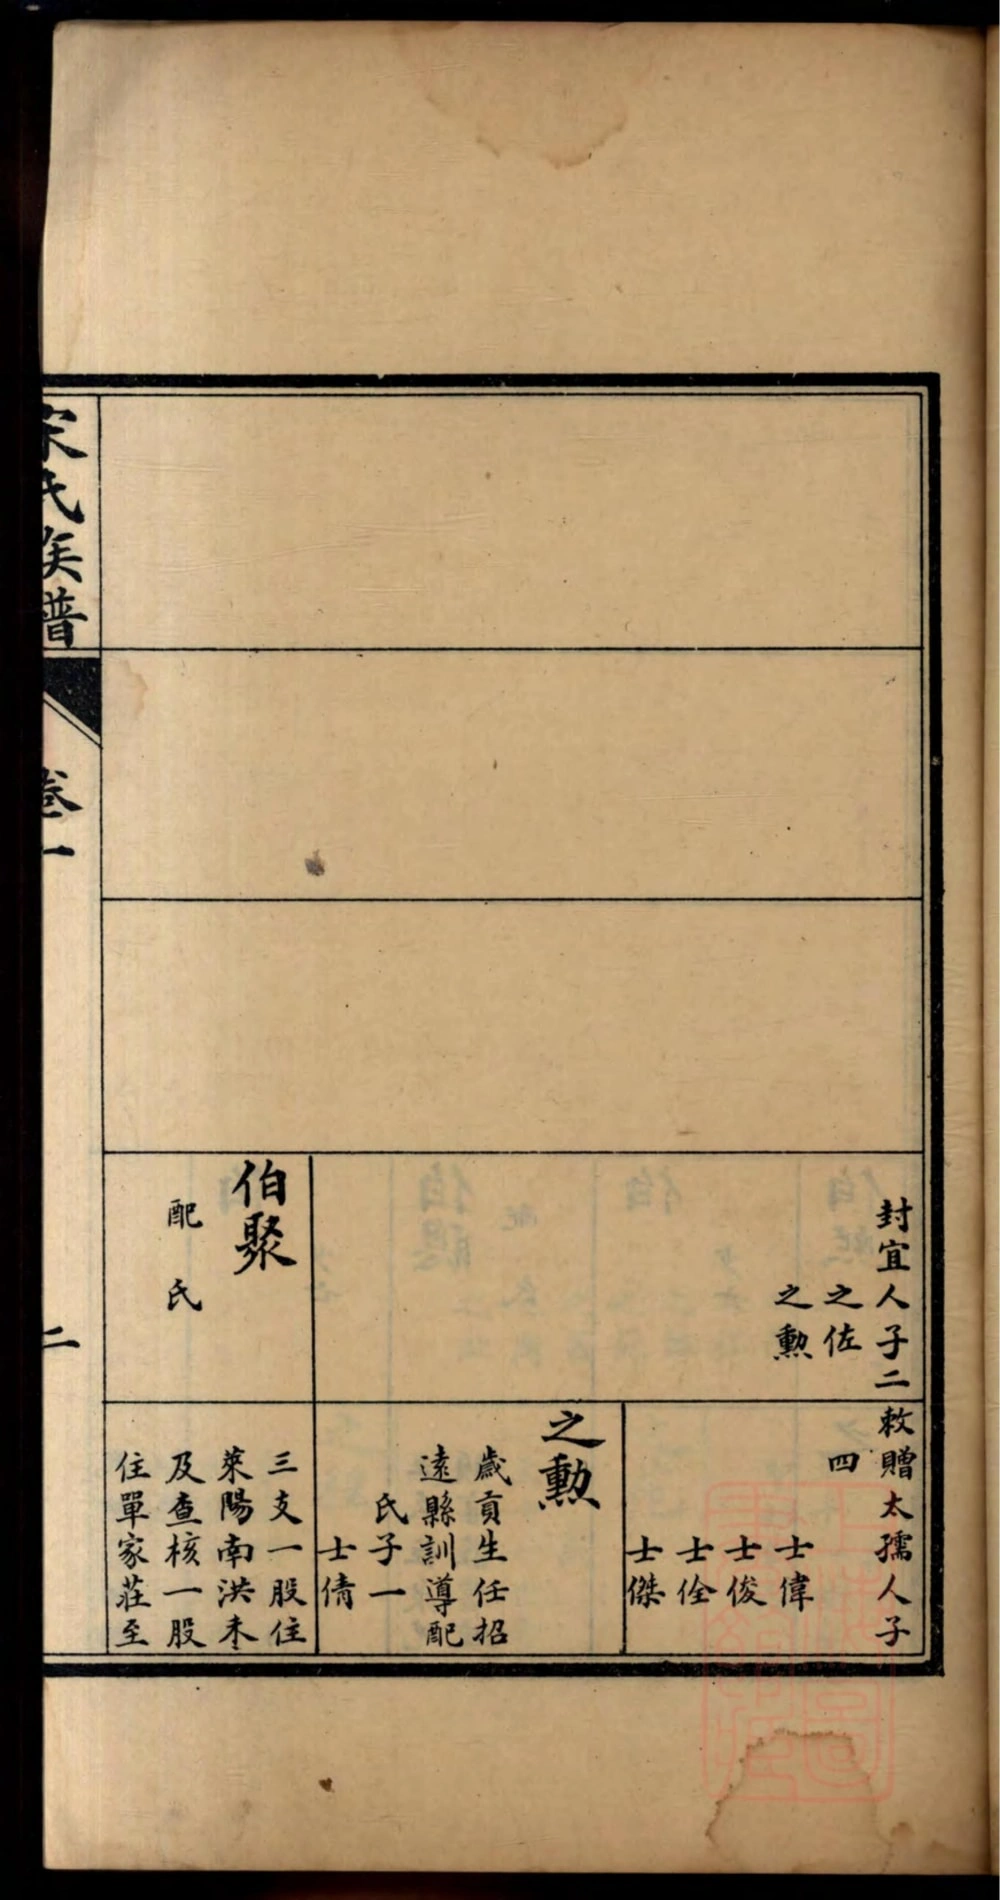 封宜人子二
之佐
之勲
伯聚
配　氏
敕贈太孺人子
四
士偉
士俊
士佺
士傑
之勲
歲貢生任招
遠縣訓導配
氏子一
士倩
三支一股住
萊陽南洪未
及查核一股
住單家莊至
宋氏族譜
卷一
二